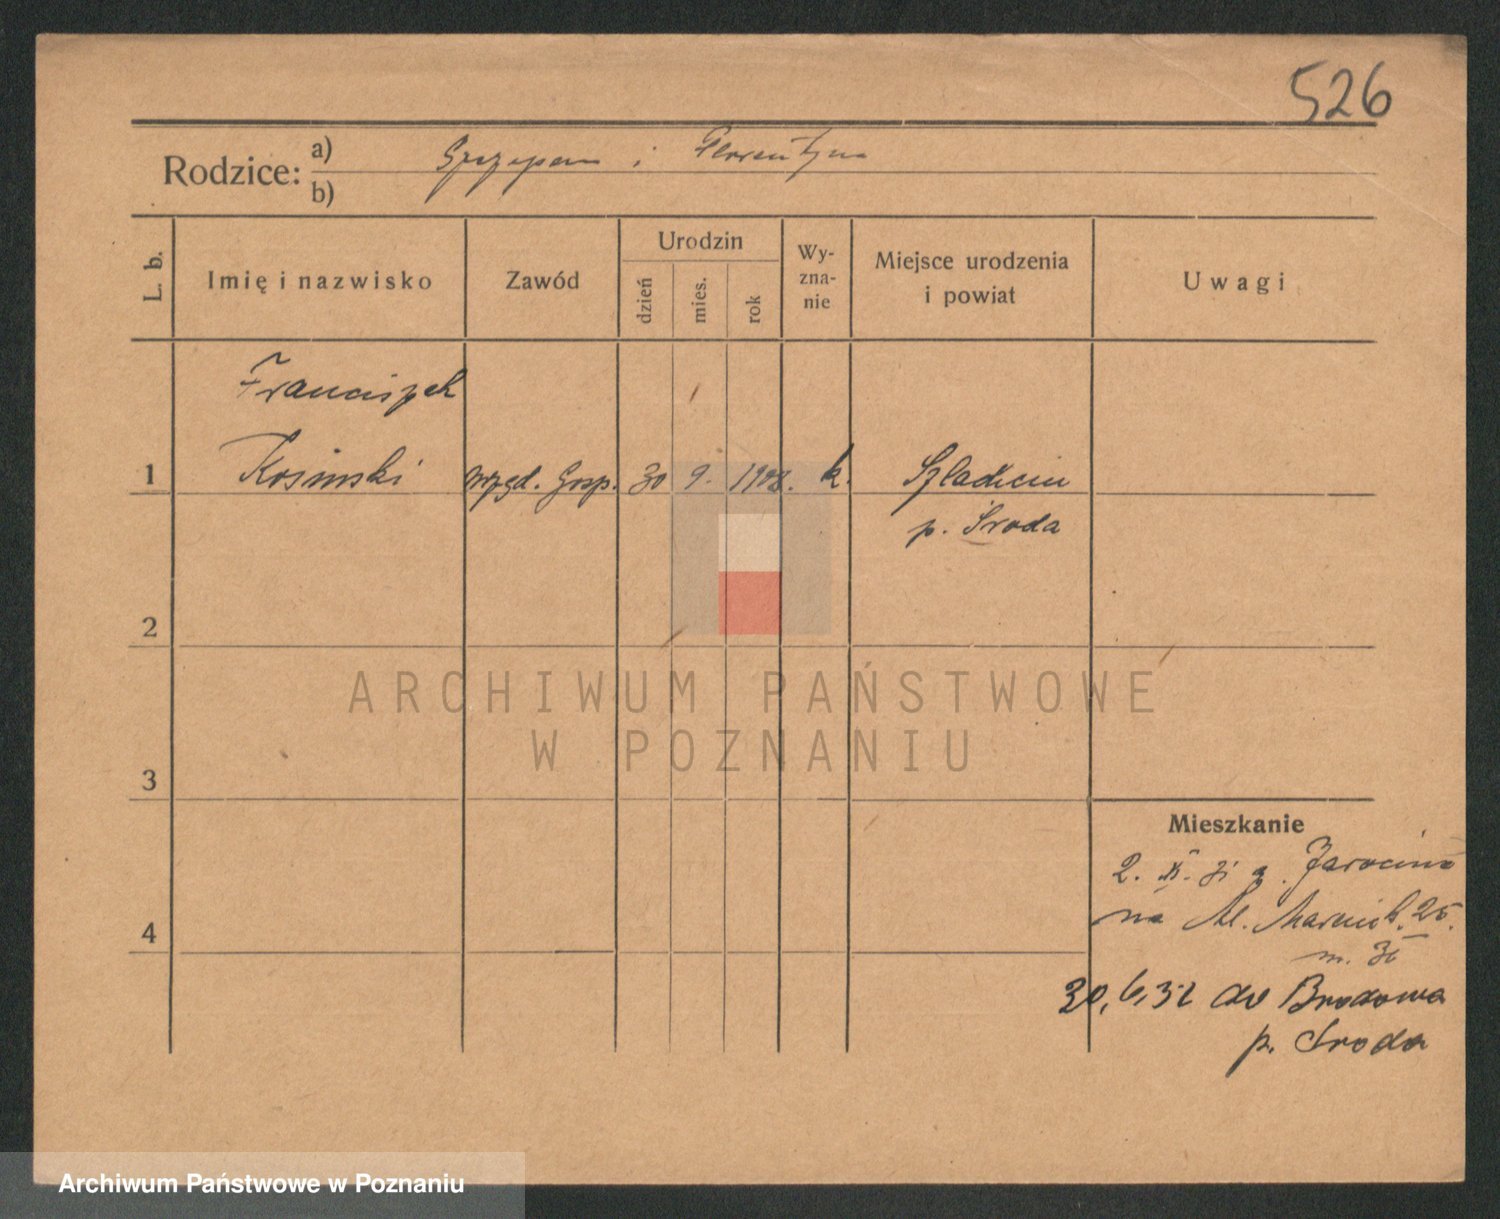 526
Rodzice: a) Szczepan i Florentyna
b)
L. b.
Imię i nazwisko
Zawód
Urodzin
dzień
mies.
rok
Wy-
zna-
nie
Miejsce urodzenia
i powiat
Uwagi
Franciszek
1 Kosinski
Gosp. 30 9. 1908. k.
p. Środa
2
3
4
Mieszkanie
2. z Jarocina
na 25.
m.
30,6,32 do Brodowa
p. Sroda
ARCHIWUM PAŃSTWOWE
W POZNANIU
Archiwum Państwowe w Poznaniu